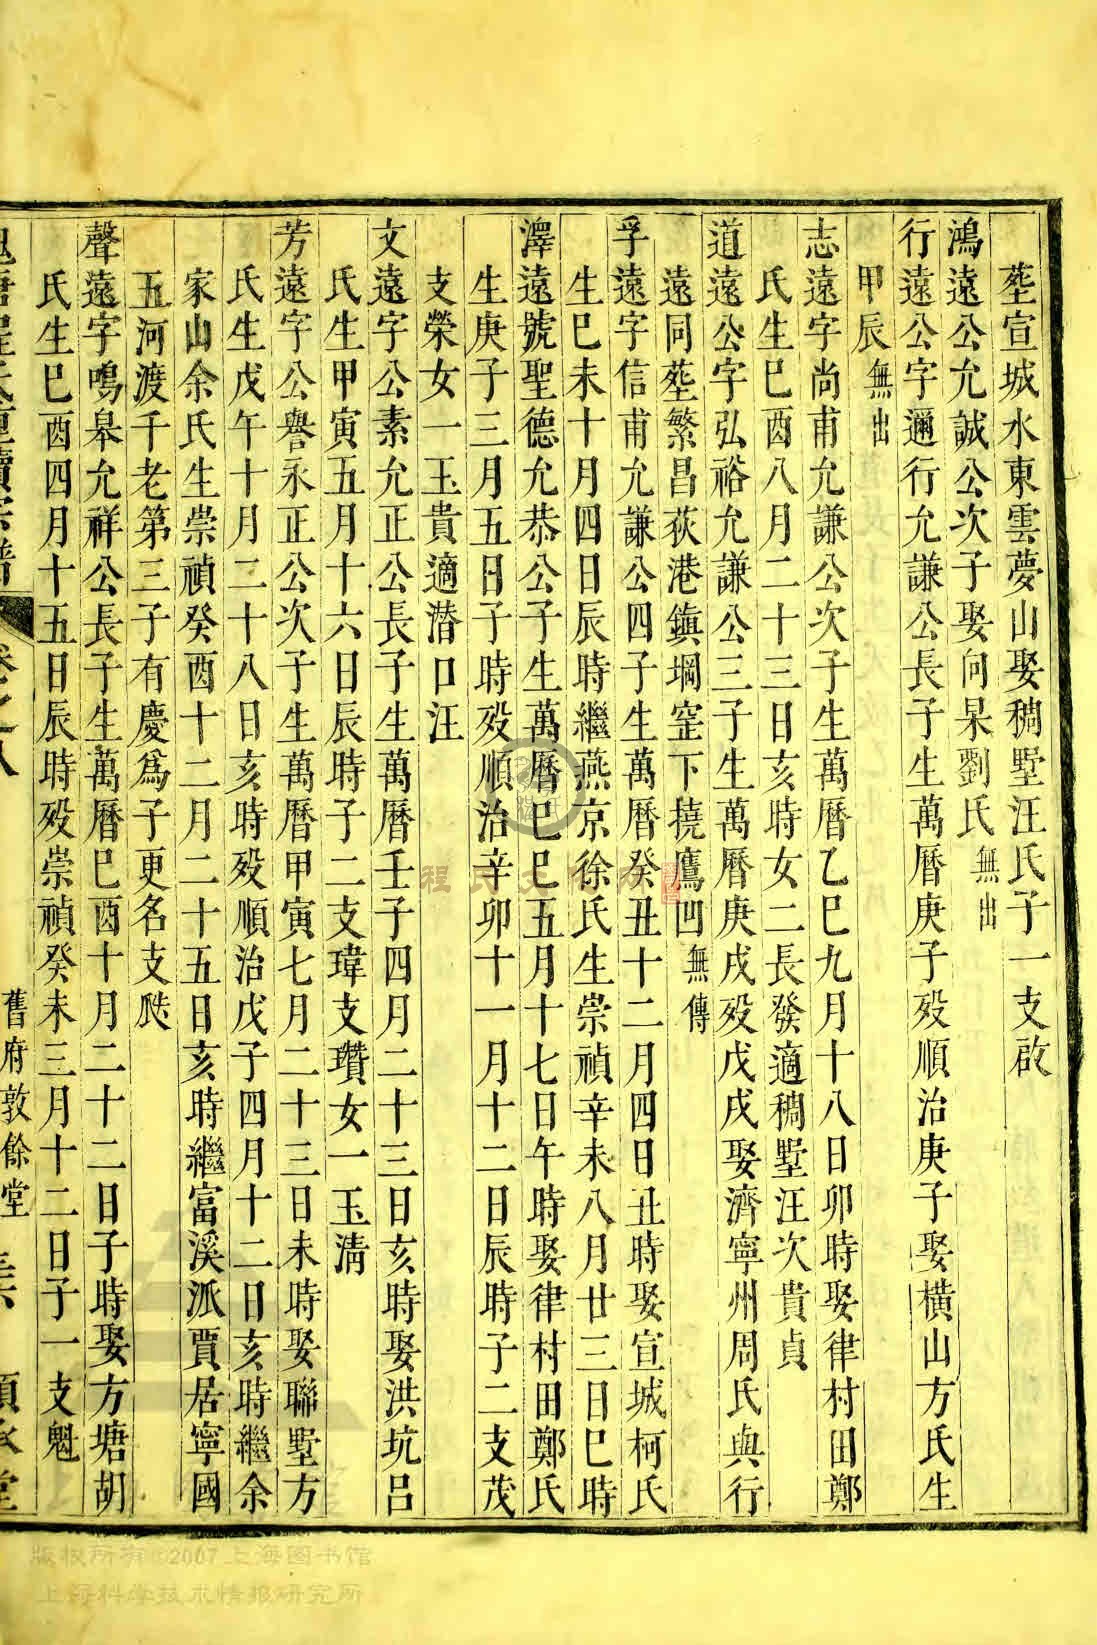 塟宣城水東雲夢山娶稠墅汪氏子一支啟
鴻遠公允誠公次子娶向杲劉氏無出
行遠公字邇行允謙公長子生萬曆庚子歿順治庚子娶橫山方氏生
甲辰無出
志遠字尚甫允謙公次子生萬曆乙巳九月十八日卯時娶律村田鄭
氏生巳酉八月二十三日亥時女二長發適稠墅汪次貴貞
道遠公字弘裕允謙公三子生萬曆庚戌歿戊戌娶濟寧州周氏與行
遠同塟繁昌荻港鎮堈窑下撓鷹凹無傳
孚遠字信甫允謙公四子生萬曆癸丑十二月四日丑時娶宣城柯氏
生巳未十月四日辰時繼燕京徐氏生崇禎辛未八月廿三日巳時
澤遠號聖德允恭公子生萬曆巳巳五月十七日午時娶律村田鄭氏
生庚子三月五日子時歿順治辛卯十一月十二日辰時子二支茂
支榮女一玉貴適潛口汪
文遠字公素允正公長子生萬曆壬子四月二十三日亥時娶洪坑呂
氏生甲寅五月十六日辰時子二支瑋支瓚女一玉淸
芳遠字公譽永正公次子生萬曆甲寅七月二十三日未時娶聯墅方
氏生戊午十月二十八日亥時歿順治戊子四月十二日亥時繼余
家山余氏生崇禎癸酉十二月二十五日亥時繼富溪派賈居寧國
五河渡千老第三子有慶爲子更名支
聲遠字鳴臯允祥公長子生萬曆巳酉十月二十二日子時娶方塘胡
氏生巳酉四月十五日辰時歿崇禎癸未三月十二日子一支魁
卷之八
舊府敦餘堂
程氏文化
版权所有©2007上海图书馆
上海科学技术情报研究所